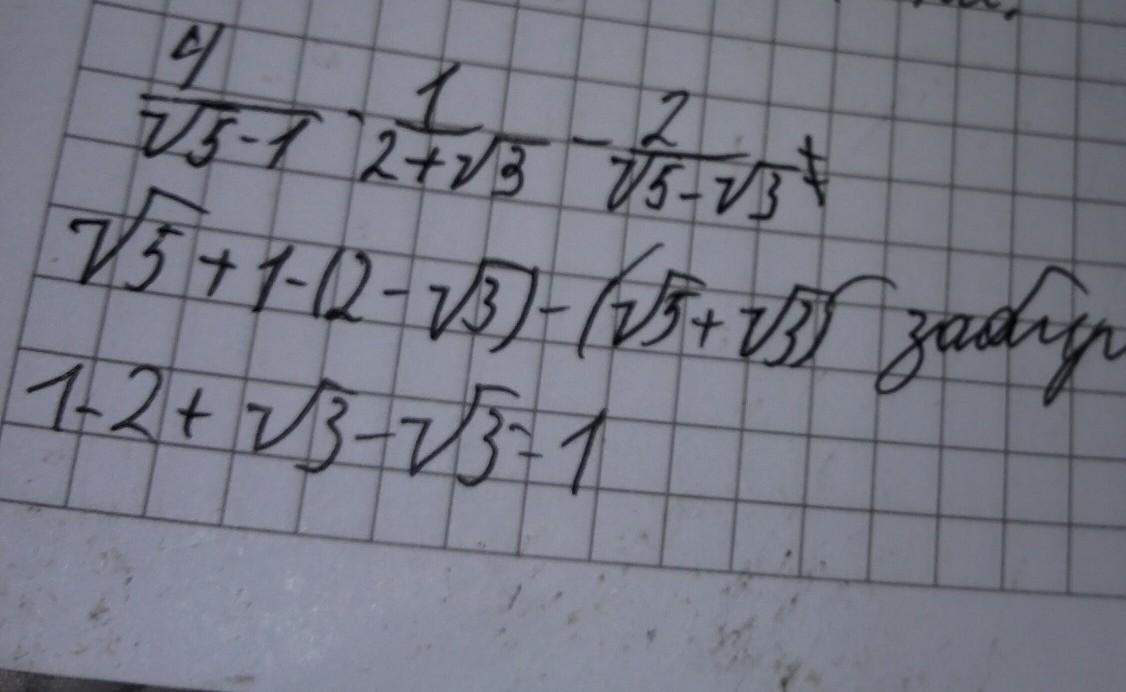 4/(√5-1) - 1/(2+√3) - 2/(√5-√3) =
√5+1-(2-√3)-(√5+√3)
1-2+√3-√3=-1